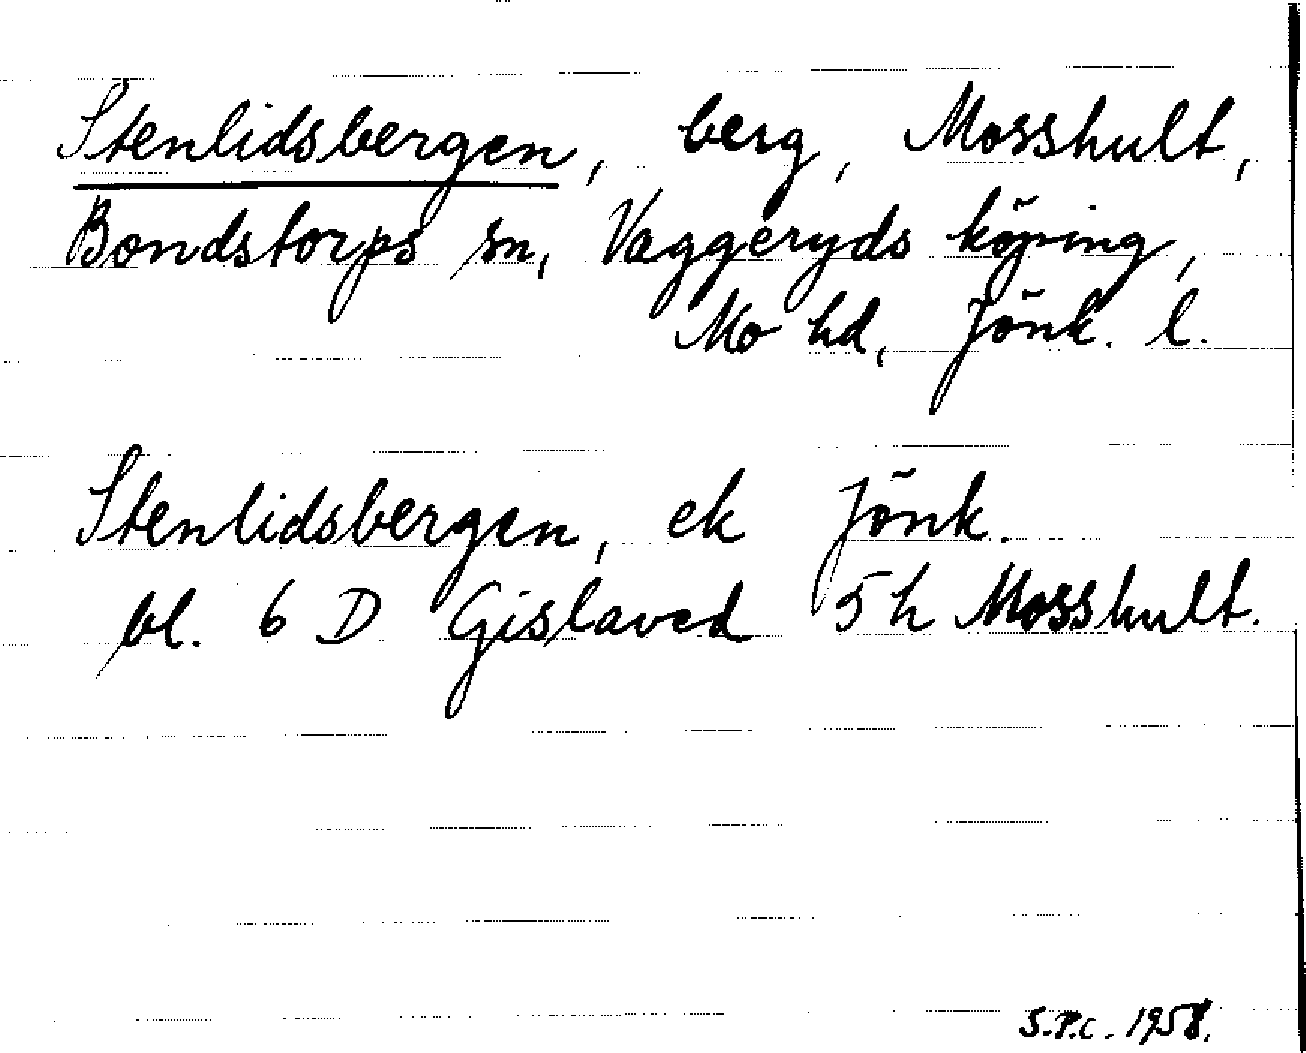 Stenlidsbergen, berg, Mosshult,
Bondstorps sn, Vaggeryds köping,
Mo hd, Jönk. l.
Stenlidsbergen, ek Jönk.
bl. 6 D Gislaved 5 h Mosshult.
S.P.C. 1958.